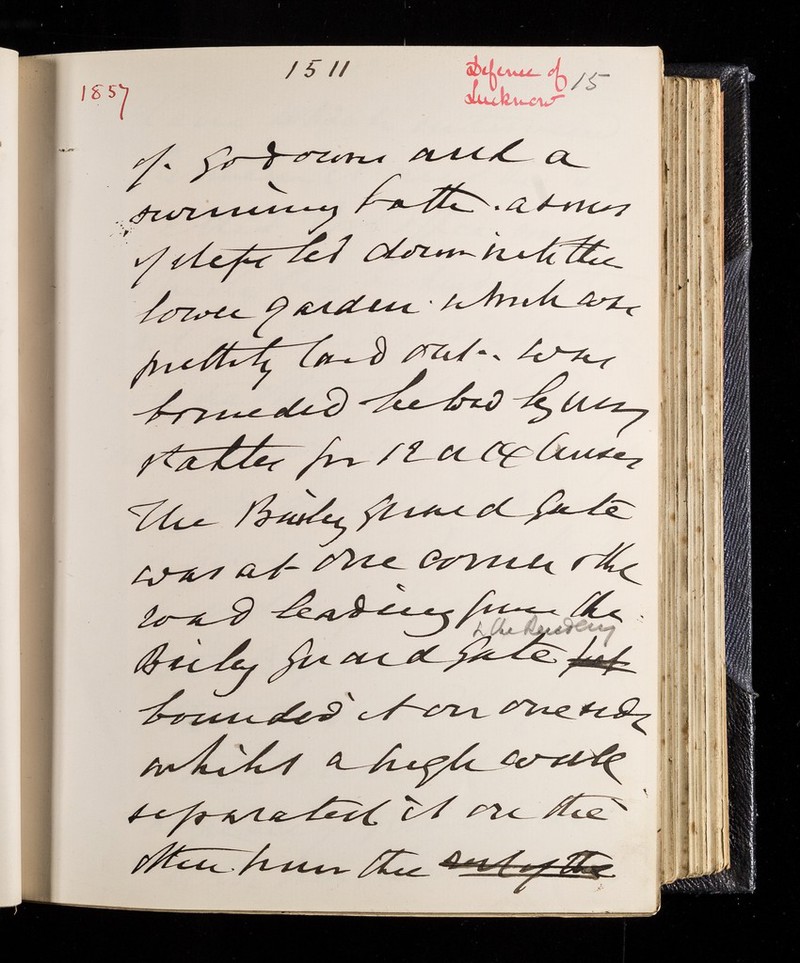 1511
1857
Defence of 15
Lucknow
of. Godowns and a
swimming bath. a series
of steps led down into the
lower garden. which was
prettily laid out.. was
bounded behind by my
stables for 12 a horses
The Baily Guard Gate
was at one corner & the
road leading from the
to the Residency
Baily Guard Gate
bounded it on one side
whilst a high wall
separated it on the
other from the rest of the